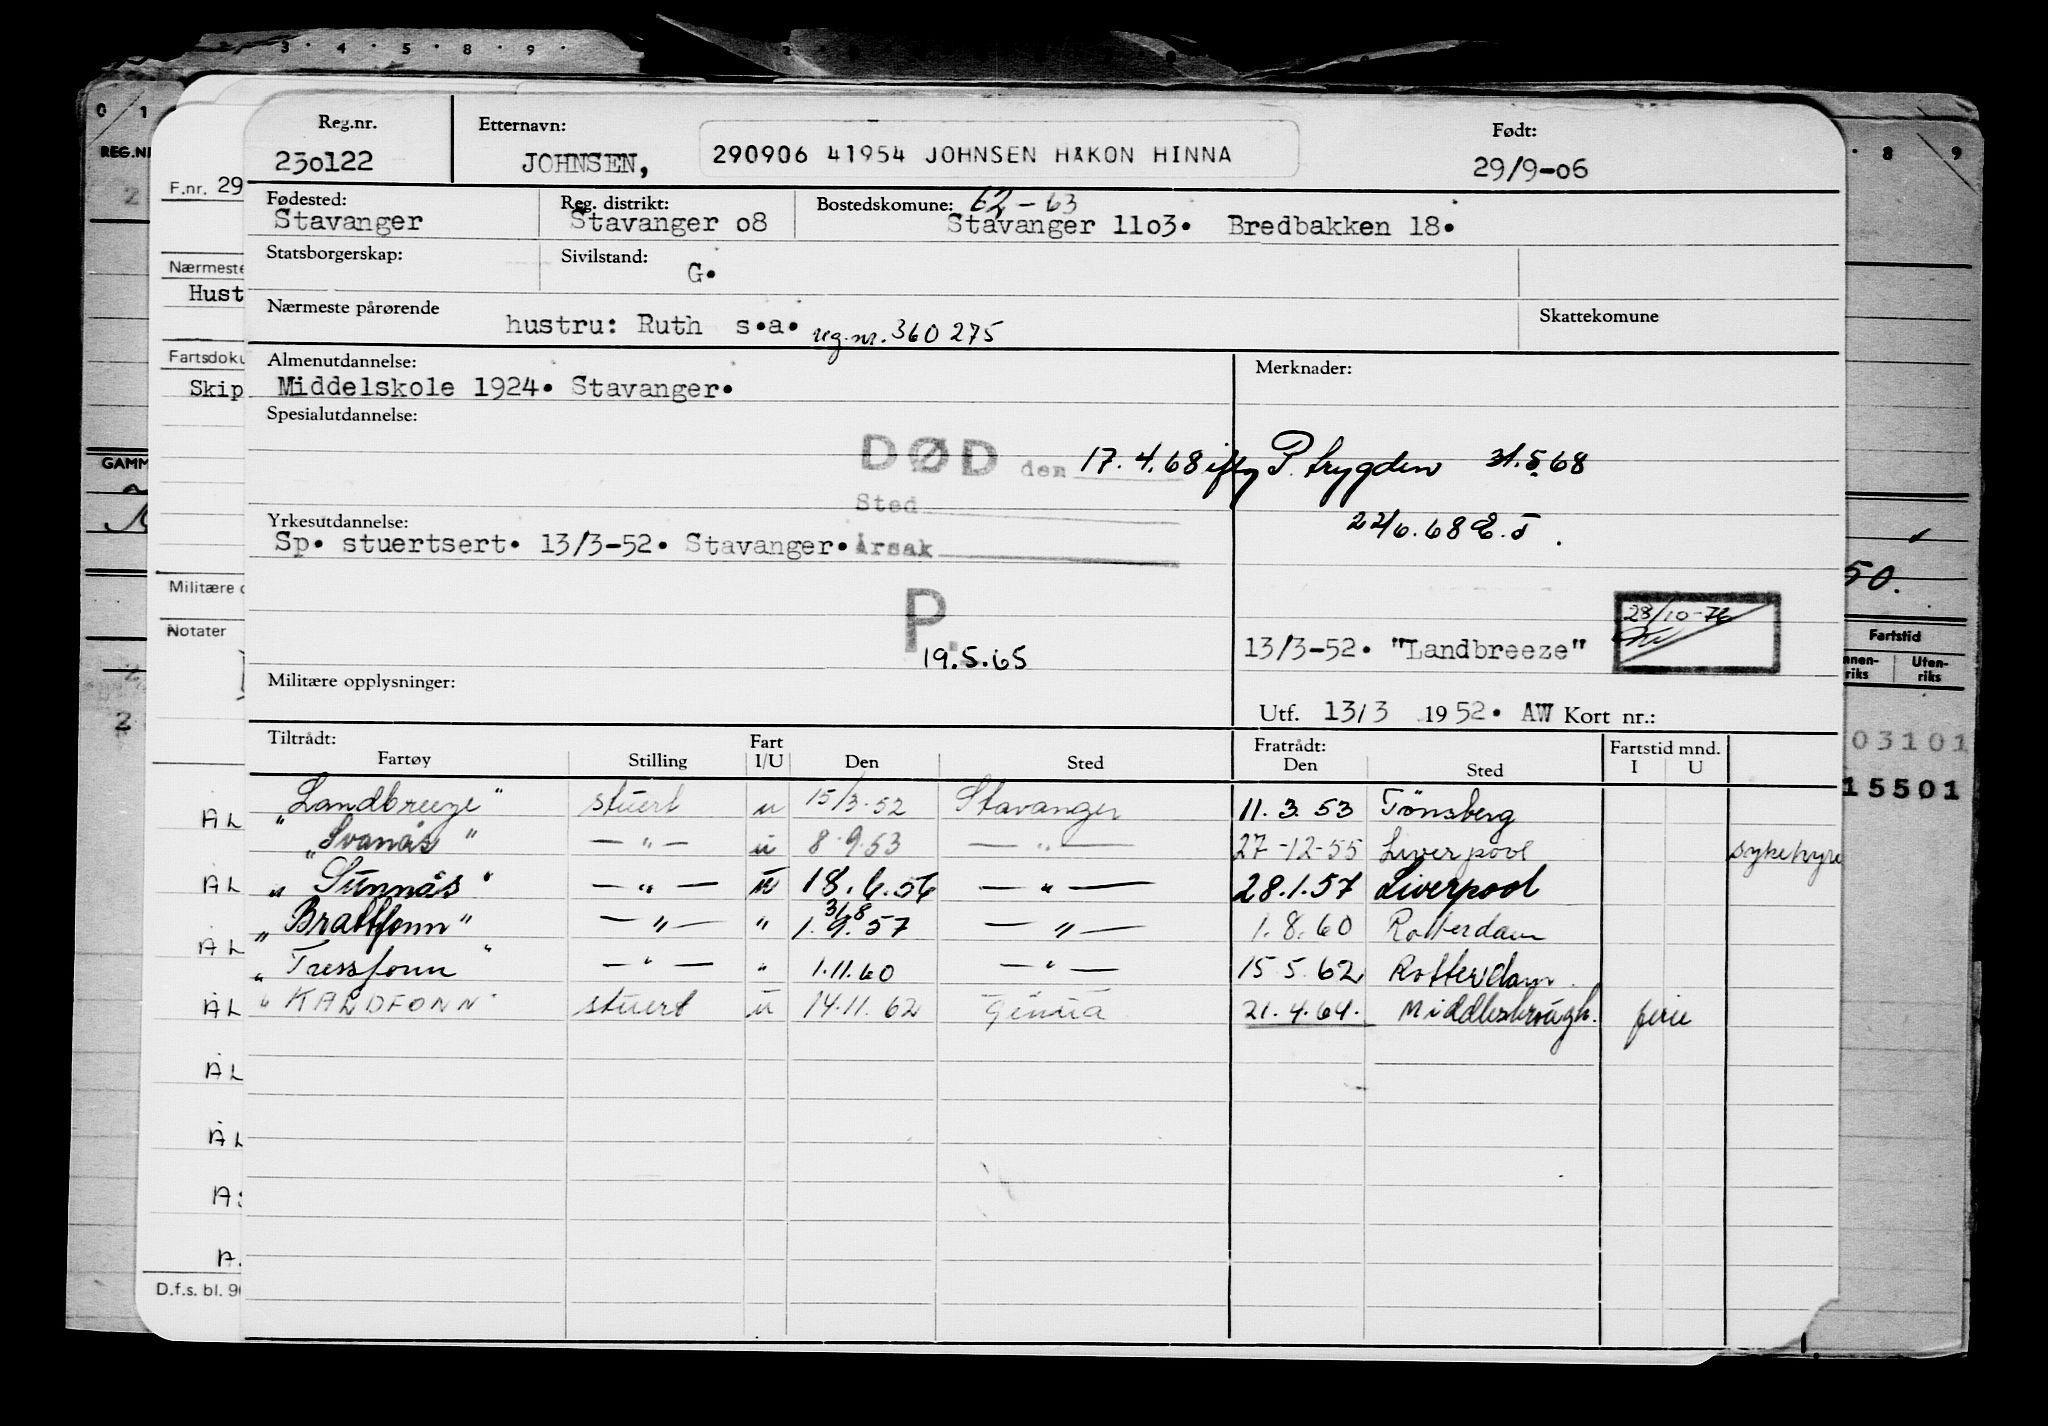 3 · 4 · 5 · 8 · 9 ·
0 1
8 · 9
REG.NR
F.nr. 29
Nærmeste
Hust
Fartsdoku
Skip
GAMM
Militære o
Notater
2
ÅL
ÅL
ÅL
ÅL
ÅL
ÅL
D.f.s. bl. 90
Reg.nr. Etternavn: Født:
230122 JOHNSEN, 290906 41954 JOHNSEN HÅKON HINNA 29/9-06
Fødested: Reg. distrikt: Bostedskomune: 62-63
Stavanger Stavanger 08 Stavanger 1103. Bredbakken 18.
Statsborgerskap: Sivilstand: G.
Nærmeste pårørende Skattekomune
hustru: Ruth s.a. reg.nr. 360 275
Almenutdannelse: Merknader:
Middelskole 1924. Stavanger.
Spesialutdannelse:
DØD den 17.4.68 iflg P. trygden 31.5.68
Sted
22/6.68 E.T.
Yrkesutdannelse:
Sp. stuertsert. 13/3-52. Stavanger. Årsak
P.
19.5.65
28/10-76
13/3-52. "Landbreeze"
Militære opplysninger:
Utf. 13/3 1952. AW Kort nr.:
Tiltrådt: Fart Fratrådt: Fartstid mnd.
Fartøy Stilling I/U Den Sted Den Sted I U
"Landbreeze" stuert u 15/3-52 Stavanger 11.3.53 Tönsberg
"Svanås" —"— u 8.9.53 —"— 27-12-55 Liverpool sykehyre
"Sunnås" —"— u 18.6.56 —"— 28.1.57 Liverpool
31.8
"Brattfonn" —"— " 1.9.57 —"— 1.8.60 Rotterdam
"Tressfonn" —"— " 1.11.60 —"— 15.5.62 Rotterdam.
"KALDFONN" stuert u 14.11.62 Genua 21.4.64. Middlesbrough. ferie
50.
Fartstid
nnen-
riks
Uten-
riks
03101
15501